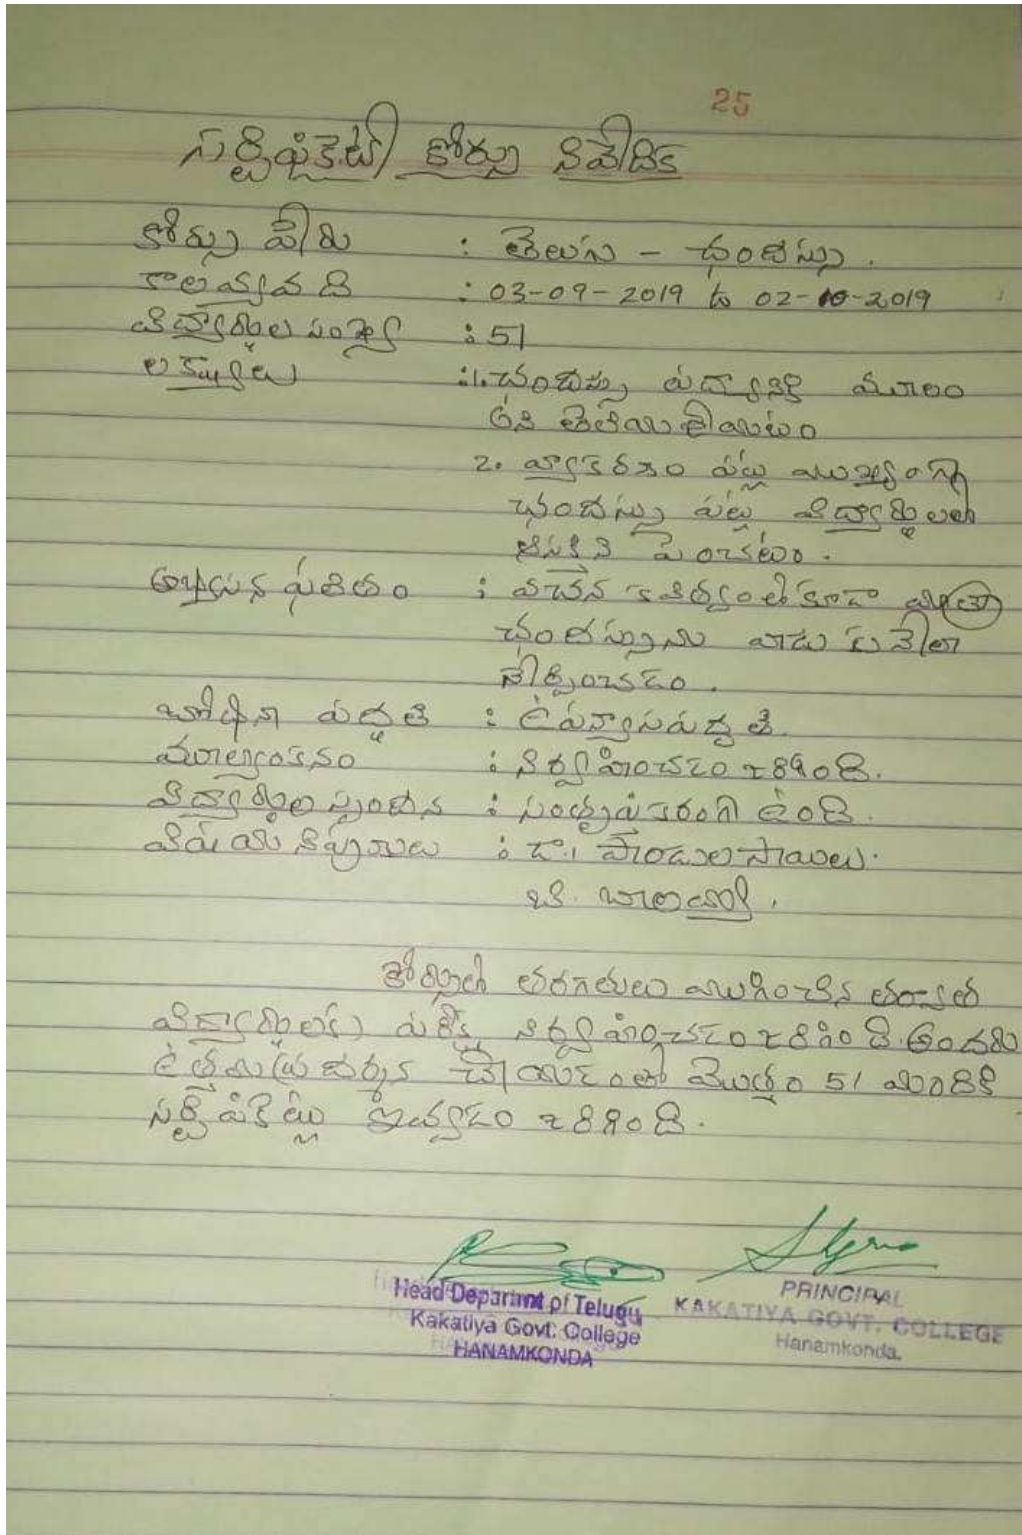 25
సర్టిఫికెట్ కోర్సు నివేదిక
కోర్సు పేరు : తెలుగు - ఛందస్సు .
కాలవ్యవధి : 03-09-2019 to 02-10-2019
విద్యార్థుల సంఖ్య : 51
లక్ష్యాలు :1. ఛందస్సు పద్యానికి మూలం
అని తెలియజేయుటం
2. వ్యాకరణం పట్ల ముఖ్యంగా
ఛందస్సు పట్ల విద్యార్థులలో
ఆసక్తిని పెంచటం .
అభ్యసన ఫలితం : వచన కవిత్వంతోకూడా మాత్రా
ఛందస్సును వాడు
నేర్పించడం .
బోధనా పద్ధతి : ఉపన్యాసపద్ధతి.
మూల్యాంకనం : నిర్వహించడం జరిగింది.
విద్యార్థుల స్పందన : సంతృప్తికరంగా ఉంది.
విషయ నిపుణులు : డా.
బి.
కోర్సులో తరగతులు ముగించిన తర్వాత
విద్యార్థులకు పరీక్ష నిర్వహించడం జరిగింది. అందరు
ఉత్తమ ప్రదర్శన చేయడంతో మొత్తం 51 మందికి
సర్టిఫికెట్లు ఇవ్వడం జరిగింది.
PRINCIPAL
Head Department of Telugu KAKATIYA GOVT. COLLEGE
Kakatiya Govt. College Hanamkonda.
HANAMKONDA